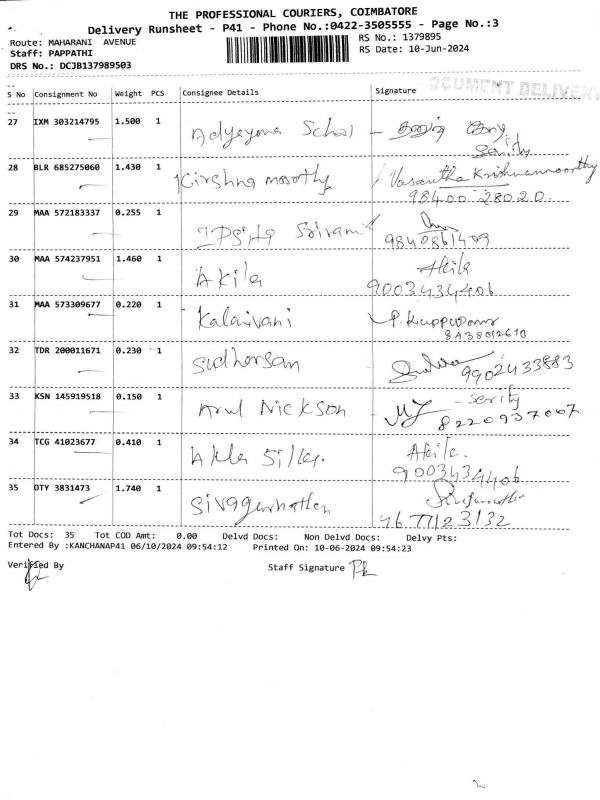 THE PROFESSIONAL COURIERS, COIMBATORE
Delivery Runsheet - P41 - Phone No.:0422-3505555 - Page No.:3
Route: MAHARANI AVENUE RS No.: 1379895
Staff: PAPPATHI RS Date: 10-Jun-2024
DRS No.: DCJB137989503
DOCUMENT DELIVERY
S No Consignment No Weight PCS Consignee Details Signature
27 IXM 303214795 1.500 1 Adyeyone Schol -
28 BLR 685275060 1.430 1 Kirshna moorthy Vasantha Krishnamoorthy
98400 28020
29 MAA 572183337 0.255 1
9840861409
30 MAA 574237951 1.460 1 Akila Akila
9003434406
31 MAA 573309677 0.220 1 Kalaivani P. Kuppusamy
32 TDR 200011671 0.230 1 Sudharsan
9902433883
33 KSN 145919518 0.150 1 Arul Nickson - Scrity
8220937007
34 TCG 41023677 0.410 1 Akila Silks. Akila.
9003434406
35 OTY 3831473 1.740 1
Tot Docs: 35 Tot COD Amt: 0.00 Delvd Docs: Non Delvd Docs: Delvy Pts:
Entered By :KANCHANAP41 06/10/2024 09:54:12 Printed On: 10-06-2024 09:54:23
Verified By Staff Signature